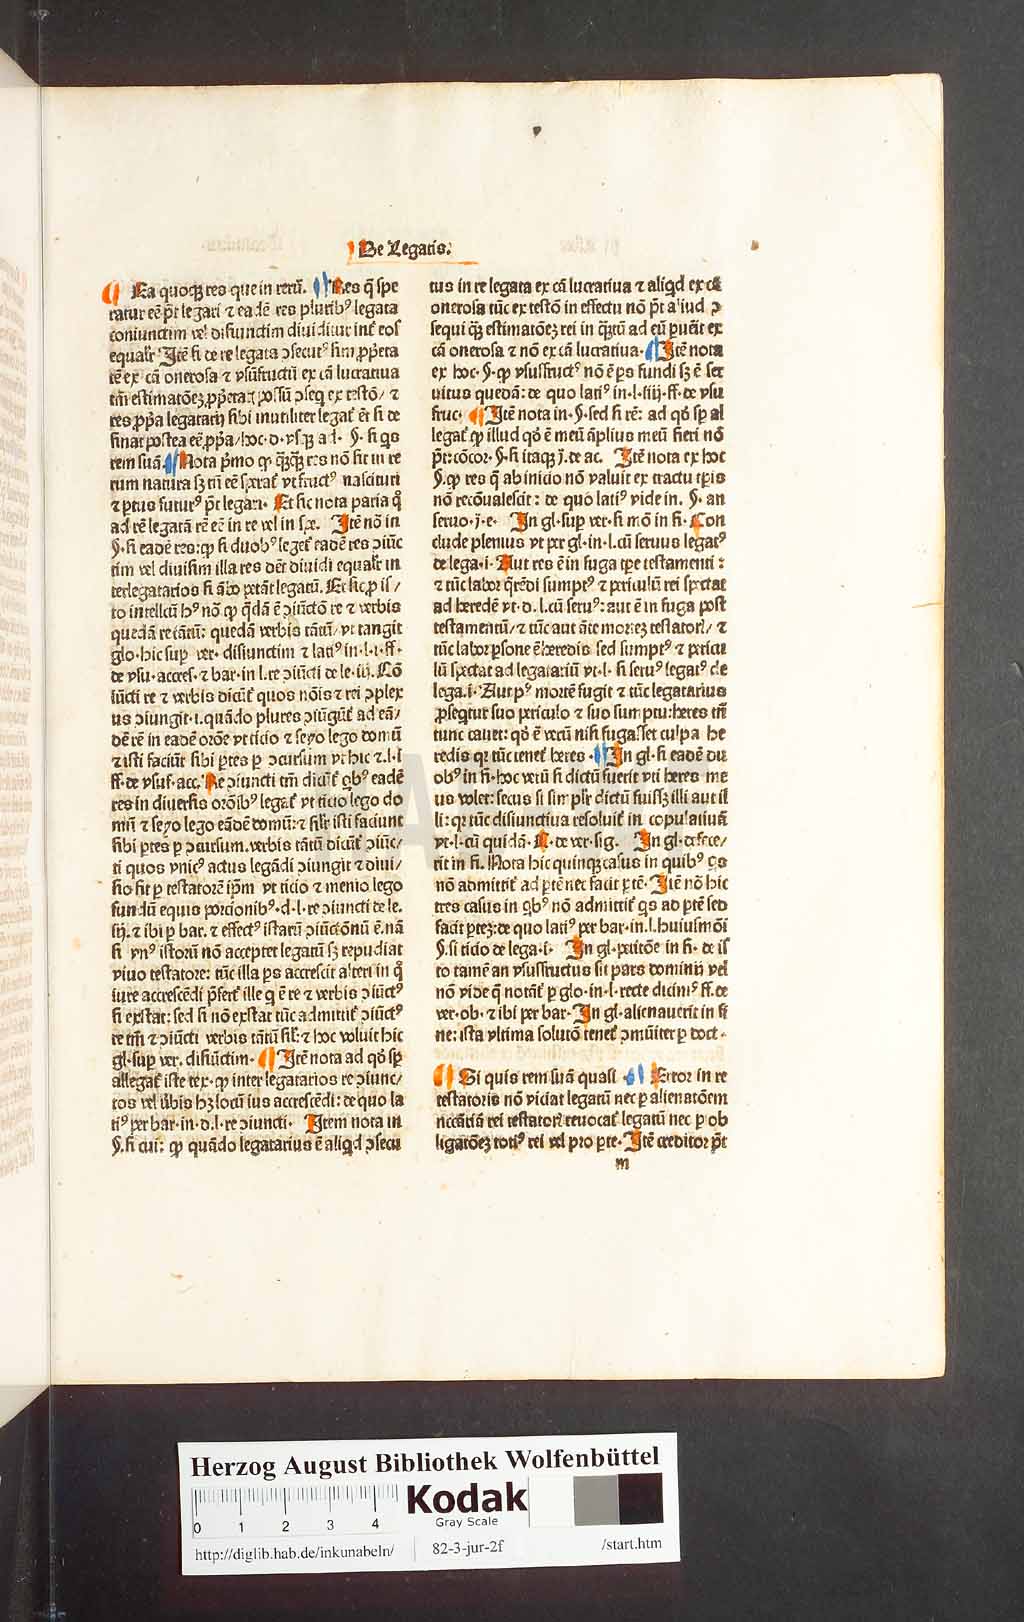 De Legatis.
Ea quoq̃ res que in rerũ. Res q̃ spe
ratur eē p̃t legari ⁊ eadē res pluribꝰ legata
coniunctim vel disiunctim diuiditur int̃ eos
equalr̃ Itē si de re legata ɔsecutꝰ sim p̱p̃eta
tē ex cã onerosa ⁊ vsũfructũ ex cã lucratiua
tm̃ estimatõeꝫ p̱p̃etatꝭ possũ ɔseq̃ ex testõ/ ⁊
res p̱p̃a legatarij sibi inutiliter legat̃ et̃ si de
sinat postea eē p̱p̃a/hoc.d.vsqꝫ ad. §. si qs
rem suã. Nota p̃mo ꝙ q̃ꝫq̃ꝫ res nõ sit in re
rum natura sꝫ tñ eē sperat̃ vt fructꝰ nascituri
⁊ p̱tus futurꝰ p̃t legari. Et sic nota paria q̃
ad rē legatã rē eē in re vel in spe. Itē nõ in
§. si eadē res: ꝙ si duobꝰ leget̃ eadē res ɔiũc
tim vel diuisim illa res det̃ diuidi equalr̃ in
terlegatarios si ãbo petãt legatũ. Et sic p̱ is/
to intellcũ hꝰ nõ ꝙ q̃dã ē ɔiũctõ re ⁊ verbis
quedã re tãtũ: quedã verbis tãtũ/ vt tangit
glo. hic sup̱ ver. disiunctim ⁊ latiꝰ in.l.i.ff.
de vsu. accres. ⁊ bar. in l.re ɔiũcti de le.iij. Cõ
iũcti re ⁊ verbis dicũt̃ quos nõis ⁊ rei ɔplex
us ɔiungit.i.quãdo plures ɔiũgũt̃ ad eã/
dē rē in eadē orõe vt ticio ⁊ seyo lego domũ
⁊ isti faciũt sibi p̱tes p̱ ɔcursum vt hic ⁊ l.i
ff. de vsuf. acc. Re ɔiuncti tm̃ dicũt̃ qbꝰ eadē
res in diuersis orõibꝰ legat̃ vt ticio lego do
mũ ⁊ seyo lego eãdē domũ: ⁊ silr̃ isti faciunt
sibi p̱tes p̱ ɔcursum. verbis tãtũ dicũt̃ ɔiũc/
ti quos vnicꝰ actus legãdi ɔiungit ⁊ diui/
sio sit p̱ testatorē ip̃m vt ticio ⁊ menio lego
fundũ equis porcionibꝰ.d.l.re ɔiuncti de le.
iij. ⁊ ibi p̱ bar. ⁊ effectꝰ istarũ ɔiũctõnũ ē. nã
si vnꝰ istorũ nõ accepter legatũ sꝫ repudiat
viuo testatore: tũc illa p̱s accrescit alteri in q̃
iure accrescẽdi p̃fert̃ ille q̃ ē re ⁊ verbis ɔiũctꝰ
si exstat: sed si nõ exstat tũc admittit̃ ɔiũctꝰ
re tm̃ ⁊ ɔiũcti verbis tãtũ silr̃: ⁊ hoc voluit hic
gl. sup̱ ver. disiũctim. Itē nota ad qõ sp̱
allegat̃ iste tex. ꝙ inter legatarios re ɔiunc/
tos vel v̓bis hꝫ locũ ius accrescẽdi: de quo la
tiꝰ per bar. in.d.l.re ɔiuncti. Item nota in
§. si cui: ꝙ quãdo legatarius ē aliqd ɔsecu
tus in re legata ex cã lucratiua ⁊ aliqd ex cã
onerosa tũc ex testõ in effectu nõ p̃t aliud ɔ
sequi q̃ꝫ estimatõeꝫ rei in q̃ꝫtũ ad eũ puēit ex
cã onerosa ⁊ nõ ex cã lucratiua. Itē nota
ex hoc. §. ꝙ vsusfructꝰ nõ ē p̱s fundi sꝫ ē ser
uitus quedã: de quo latiꝰ in.l.iiij.ff.de vsu
fruc. Itē nota in.§. sed si rē: ad qõ sp̱ al
legat̃ ꝙ illud qõ ē meũ ãplius meũ fieri nõ
p̃t: cõcor.§. si itaqꝫ j. de ac. Itē nota ex hoc
§. ꝙ res q̃ ab inicio nõ valuit ex tractu tp̱is
nõ recõualescit: de quo latiꝰ vide in. §. an
seruo.j.e. In gl. sup̱ ver. si mõ in fi. Con
clude plenius vt per gl.in.l.cũ seruus legatꝰ
de lega.i. Aut res ē in fuga tp̱e testamenti:
⁊ tũc labor q̃rẽdi sumptꝰ ⁊ p̱iculũ rei spectat
ad heredē vt.d.l.cũ seruꝰ: aut ē in fuga post
testamentũ/ ⁊ tũc aut ãte morteꝫ testatorꝭ/ ⁊
tũc labor p̱sone ē heredis sed sumptꝰ ⁊ p̱icu
lũ spectat ad legatariũ vt.l. si seruꝰ legatꝰ de
lega.i. Aut pꝰ mortē fugit ⁊ tũc legatarius
p̱seqtur suo p̱iculo ⁊ suo sumptu: heres tñ
tunc cauet: qõ ē verũ nisi fugasset culpa he
redis qꝛ tũc tenet̃ heres. In gl. si eadē du
obꝰ in fi. hoc verũ si dictũ fuerit vti heres me
us volet: secus si simplr̃ dictũ fuissꝫ illi aut il
li: qꝛ tũc disiunctiua resoluit̃ in copulatiuã
vt.l.cũ quidã. C. de ver. sig. In gl. defece/
rit in fi. Nota hic quinqꝫ casus in quibꝰ qs
nõ admittit̃ ad p̱tē nec facit p̱tē. Itē nõ hic
tres casus in qbꝰ nõ admittit̃ qs ad p̱tē sed
facit p̱teꝫ: de quo latiꝰ per bar. in.l.huiusmõi
§. si ticio de lega.i. In gl. petitõe in fi. de is
to tamē an vsusfructus sit pars dominij vel
nõ vide q̃ notãt̃ p̱ glo. in.l.recte dicimꝰ ff. de
ver. ob. ⁊ ibi per bar. In gl. alienauerit in fi
ne: ista vltima solutõ tenet̃ ɔmũiter p̱ doct.
Si quis rem suã quasi. Error in re
testatoris nõ viciat legatũ nec p̱ alienatõem
nccãriã rei testatorꝭ reuocat̃ legatũ nec p̱ ob
ligatõeꝫ totiꝰ rei vel pro p̱te. Itē creditor p̃t
m
Herzog August Bibliothek Wolfenbüttel
0 1 2 3 4
Kodak
Gray Scale
http://diglib.hab.de/inkunabeln/ 82-3-jur-2f /start.htm